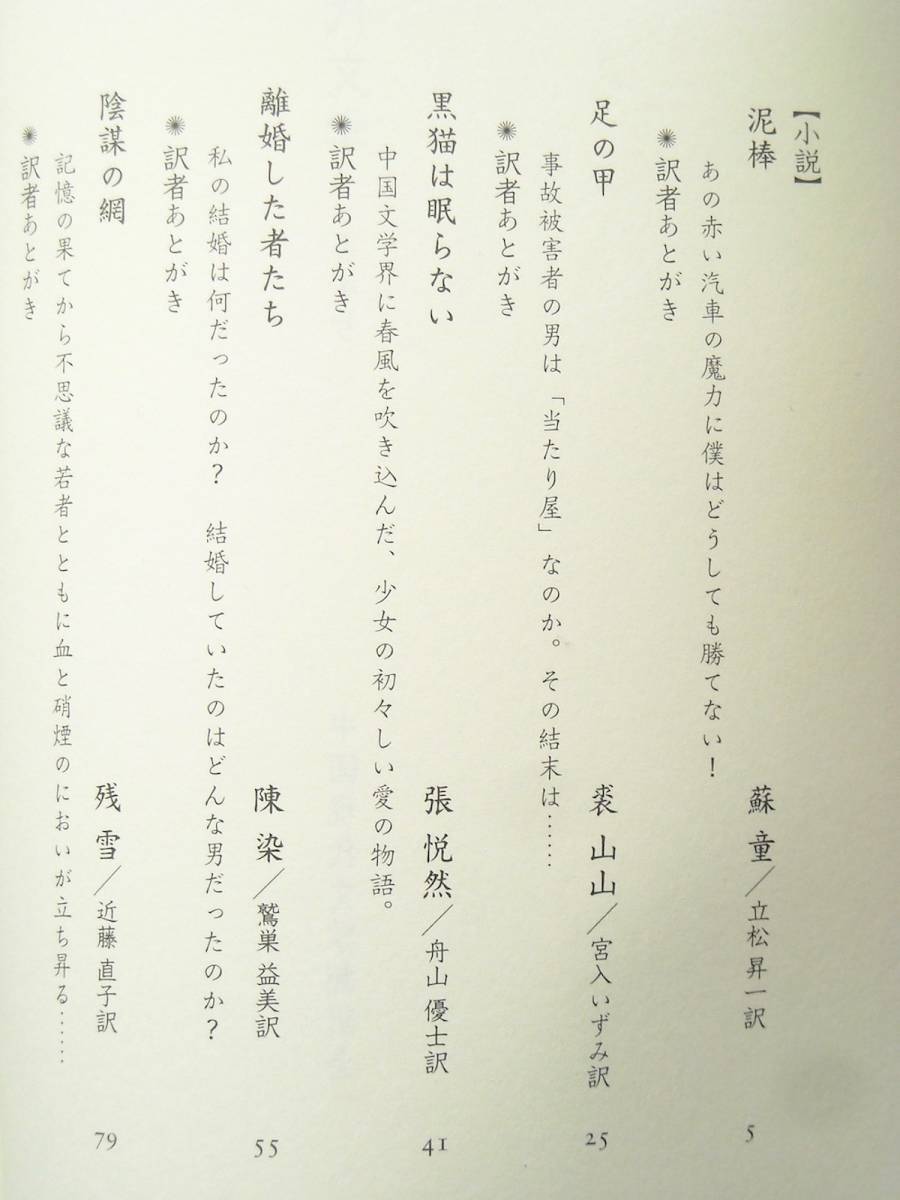 【小説】
泥棒 蘇 童／立松 昇一訳 5
あの赤い汽車の魔力に僕はどうしても勝てない！
訳者あとがき
足の甲 裘 山山／宮入いずみ訳 25
事故被害者の男は「当たり屋」なのか。その結末は……
訳者あとがき
黒猫は眠らない 張 悦然／舟山 優士訳 41
中国文学界に春風を吹き込んだ、少女の初々しい愛の物語。
訳者あとがき
離婚した者たち 陳 染／鷲巣 益美訳 55
私の結婚は何だったのか？ 結婚していたのはどんな男だったのか？
訳者あとがき
陰謀の網 残 雪／近藤 直子訳 79
記憶の果てから不思議な若者とともに血と硝煙のにおいが立ち昇る……
訳者あとがき